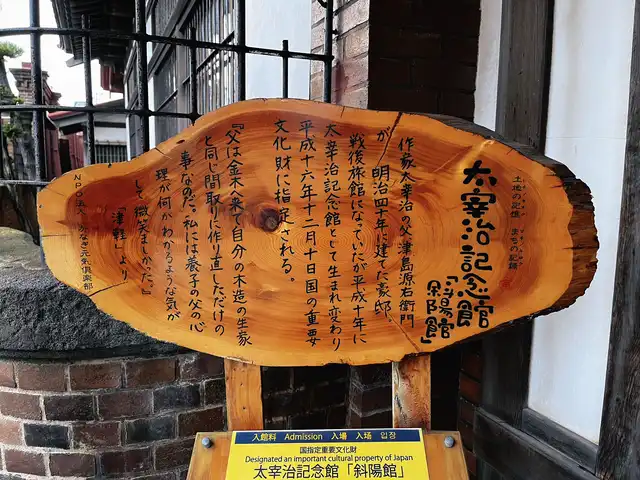 土地の記憶 まちの記録
太宰治記念館
「斜陽館」
作家太宰治の父津島源右衛門
が、明治四十年に建てた豪邸。
戦後旅館になっていたが平成十年に
太宰治記念館として生まれ変わり
平成十六年十二月十日国の重要
文化財に指定される。
『父は金木へ来て自分の木造の生家
と同じ間取りに作り直しただけの
事なのだ。私には養子の父の心
理が何かわかるような気が
して微笑ましかった。』
「津軽」より
NPO法人 かなぎ元気倶楽部
入館料 Admission 入場 入场 입장
国指定重要文化財
Designated an important cultural property of Japan
太宰治記念館「斜陽館」